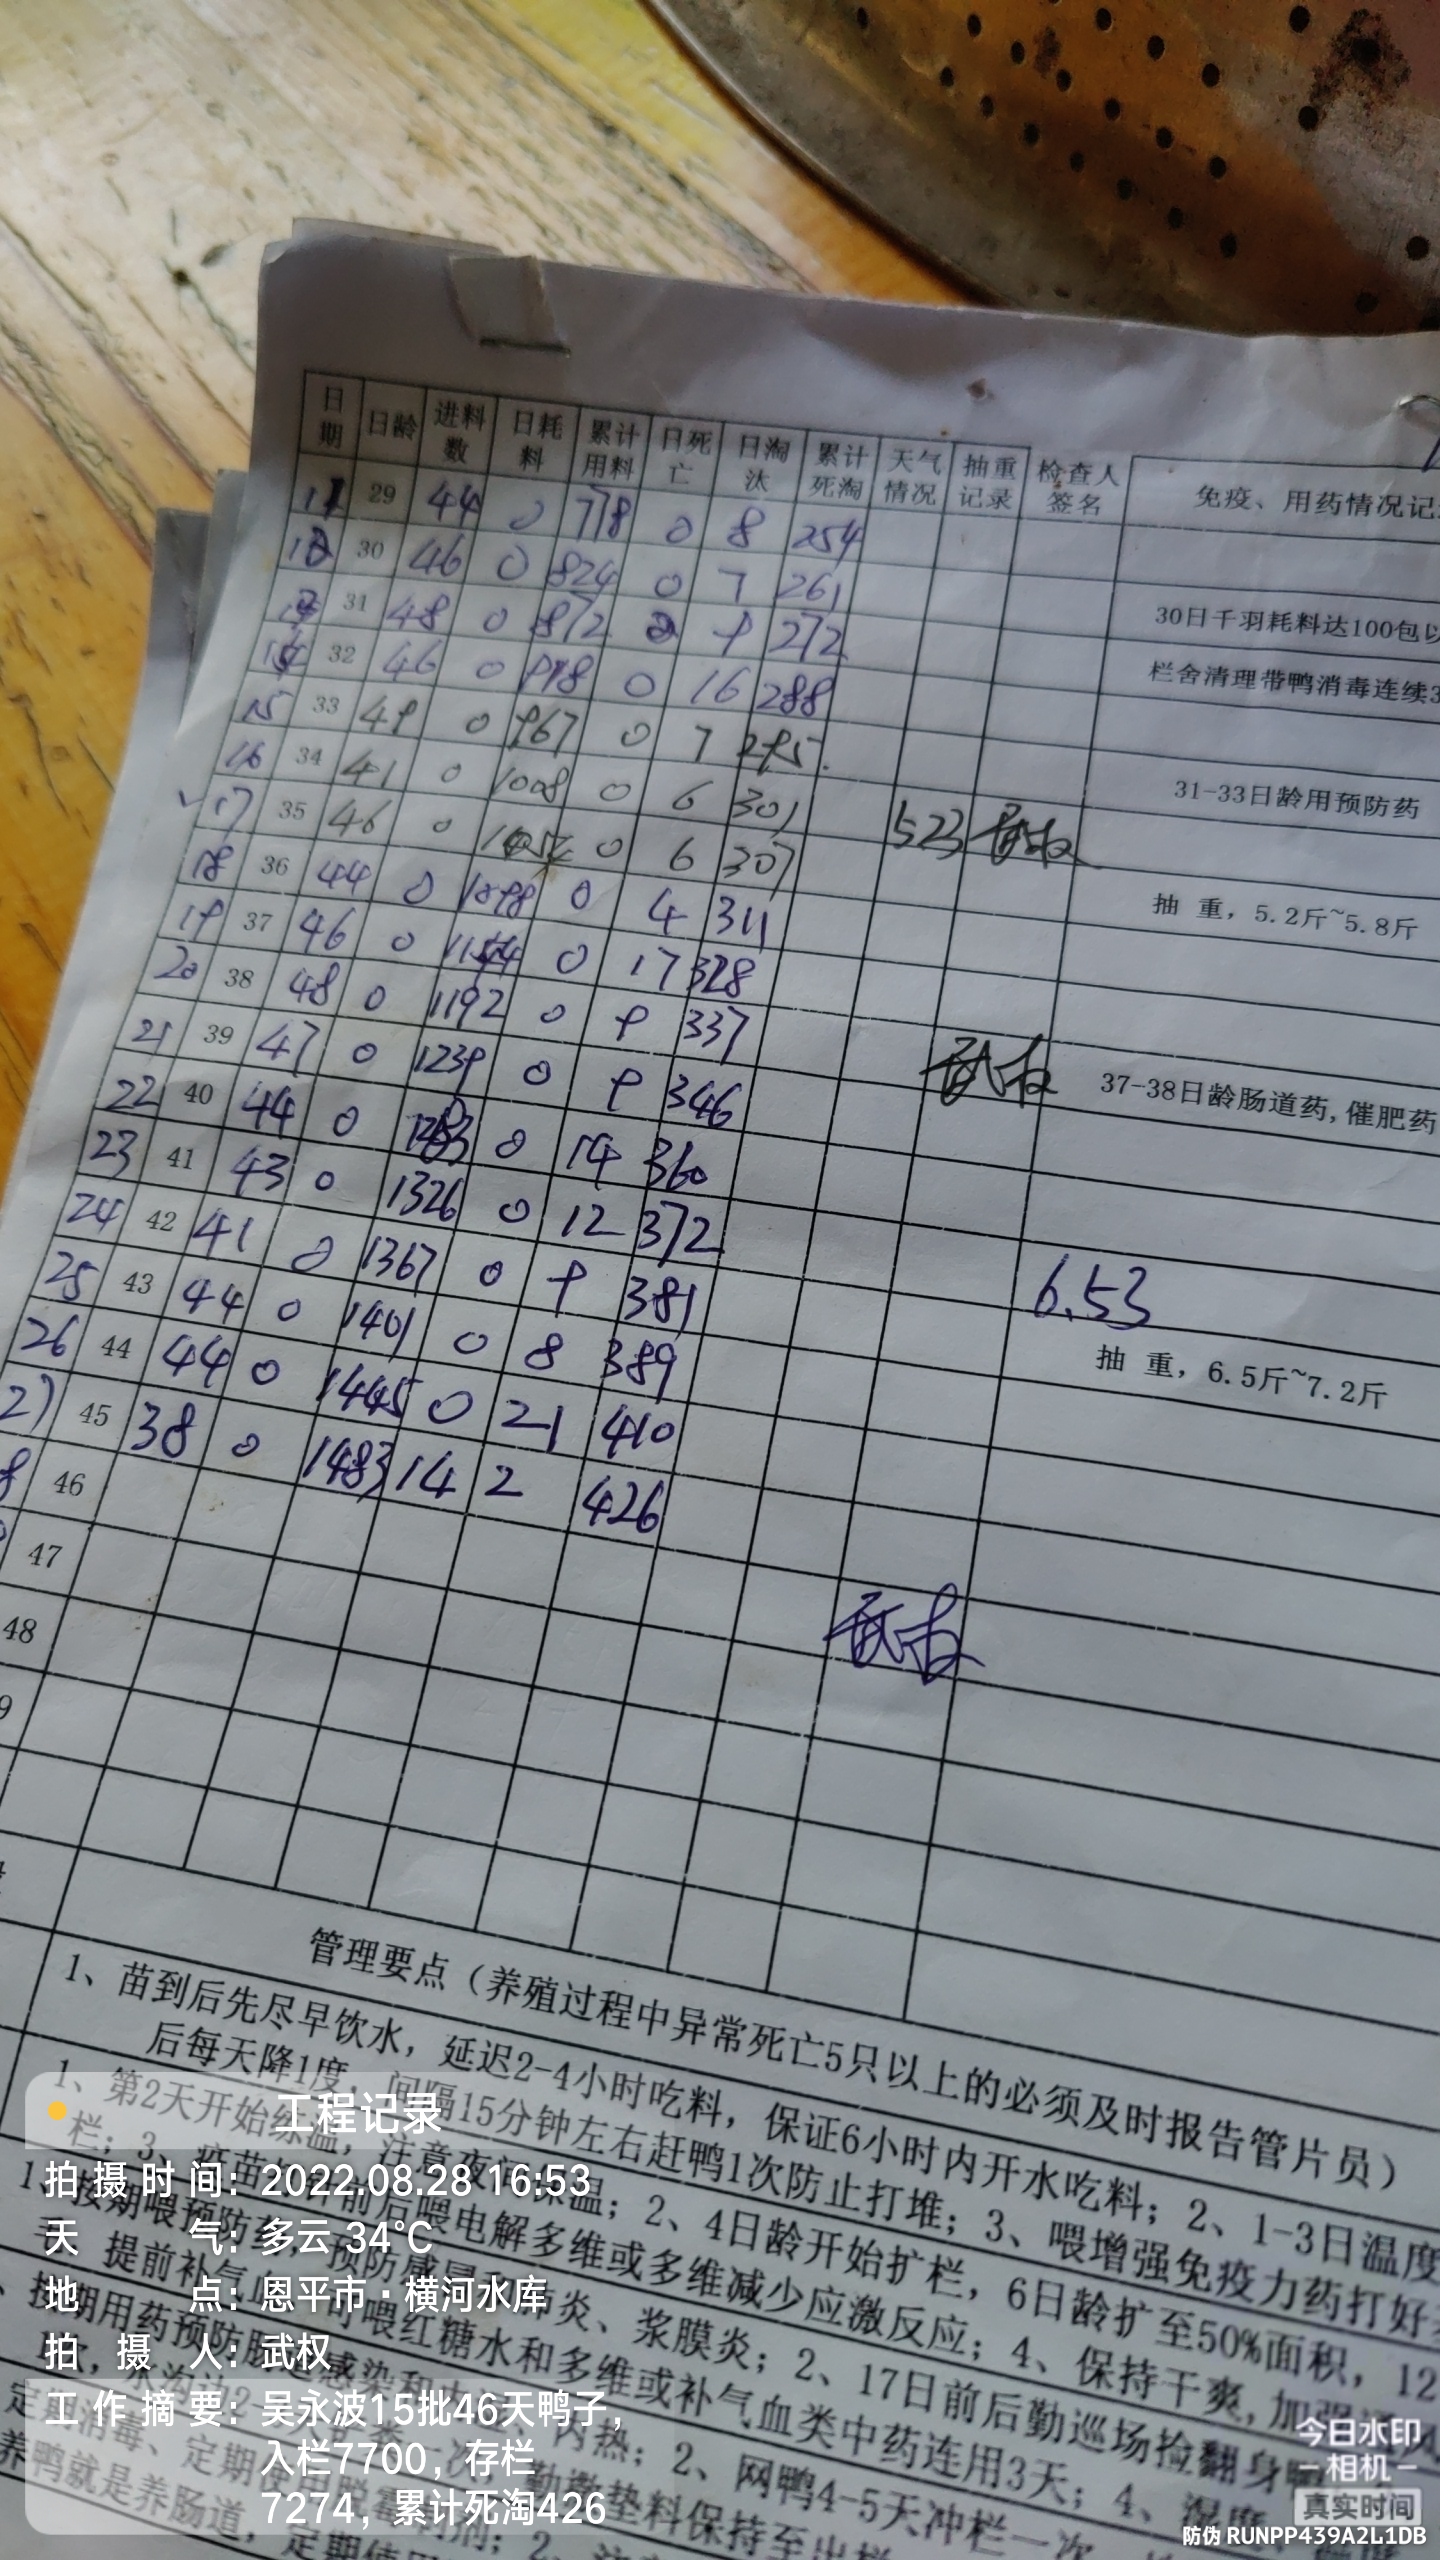 日期 日龄 进料数 日耗料 累计用料 日死亡 日淘汰 累计死淘 天气情况 抽重记录 检查人签名 免疫、用药情况记
11 29 44 0 778 0 8 254
12 30 46 0 824 0 7 261
31 48 0 872 2 9 272
30日千羽耗料达100包以
32 46 0 918 0 16 288
栏舍清理带鸭消毒连续3
15 33 49 0 967 0 7 295
16 34 41 0 1008 0 6 301
31-33日龄用预防药
17 35 46 0 1054 0 6 307 523 武权
18 36 44 0 1098 0 4 311
抽 重，5.2斤~5.8斤
19 37 46 0 1144 0 17 328
20 38 48 0 1192 0 9 337
21 39 47 0 1239 0 9 346 武权
37-38日龄肠道药,催肥药
22 40 44 0 1283 0 14 360
23 41 43 0 1326 0 12 372
24 42 41 0 1367 0 9 381
6.53
25 43 44 0 1401 0 8 389
抽 重，6.5斤~7.2斤
26 44 44 0 1445 0 21 410
27 45 38 0 1483 14 2 426
8 46
47
武权
48
9
管理要点（养殖过程中异常死亡5只以上的必须及时报告管片员）
1、苗到后先尽早饮水，延迟2-4小时吃料，保证6小时内开水吃料；2、1-3日温度
后每天降1度，间隔15分钟左右赶鸭1次防止打堆；3、喂增强免疫力药打好
1、第2天开始练温，注意夜间保温；2、4日龄开始扩栏，6日龄扩至50%面积，12
栏；3、疫苗 前后喂电解多维或多维减少应激反应；4、保持干爽,加强
1、按期喂预防 肺炎、浆膜炎；2、17日前后勤巡场捡翻身鸭
提前补气 喂红糖水和多维或补气血类中药连用3天；4、
按期用药预防 感染 内热；2、网鸭4-5天冲栏一次
养鸭就是养肠道，定期使用
工程记录
拍摄时间：2022.08.28 16:53
天气：多云 34℃
地点：恩平市·横河水库
拍摄人：武权
工作摘要：吴永波15批46天鸭子，
入栏7700，存栏
7274，累计死淘426
今日水印
相机
真实时间
防伪 RUNPP439A2L1DB